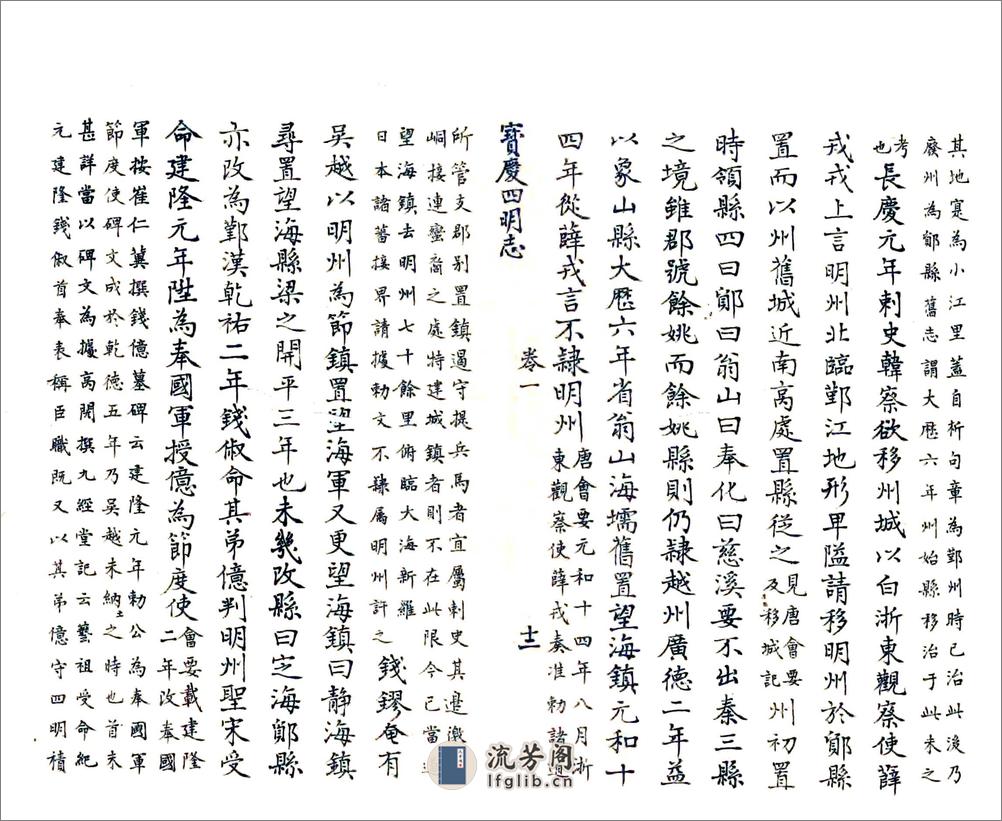 其地寔為小江里蓋自析句章為鄞州時已治此後乃
廢州為鄮縣舊志謂大歷六年州始縣移治于此未之
考也長慶元年刺史韓察欲移州城以白浙東觀察使薛
戎戎上言明州北臨鄞江地形卑隘請移明州於鄮縣
置而以州舊城近南高處置縣從之見唐會要及移城記州初置
時領縣四曰鄮曰翁山曰奉化曰慈溪要不出秦三縣
之境雖郡號餘姚而餘姚縣則仍隸越州廣德二年益
以象山縣大歷六年省翁山海壖舊置望海鎮元和十
四年從薛戎言不隸明州唐會要元和十四年八月浙東觀察使薛戎奏准勅諸道
寶慶四明志 卷一 十二
所管支郡别置鎮遏守捉兵馬者宜屬刺史其邊徼
峒接連蠻裔之處特建城鎮者則不在此限今已當
望海鎮去明州七十餘里俯臨大海新羅日本諸蕃接界請據勅文不隸屬明州許之錢鏐奄有
吳越以明州為節鎮置望海軍又更望海鎮曰靜海鎮
尋置望海縣梁之開平三年也未幾改縣曰定海鄮縣
亦改為鄞漢乾祐二年錢俶命其弟億判明州聖宋受
命建隆元年陞為奉國軍授億為節度使會要載建隆二年改奉國
軍按崔仁冀撰錢億墓碑云建隆元年勅公為奉國軍
節度使碑文成於乾德五年乃吳越未納土之時也首末
甚詳當以碑文為據高閌撰九經堂記云藝祖受命紀
元建隆錢俶首奉表稱臣職既又以其弟億守四明積
流芳阁
lfglib.cn